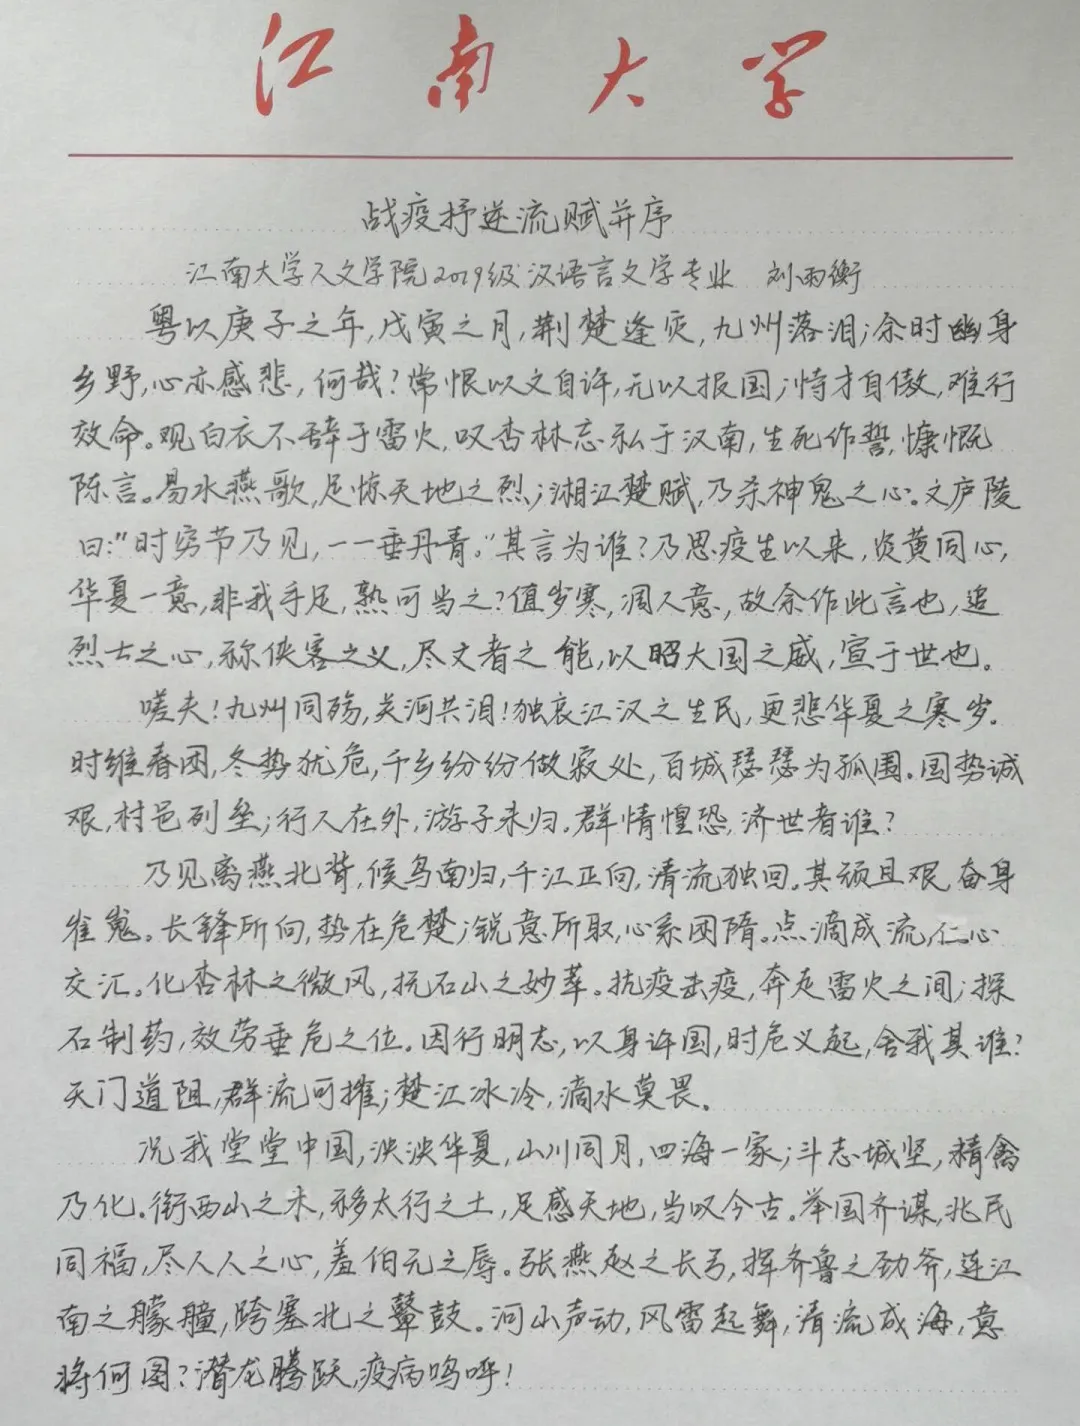 江南大学
战疫抒逆流赋并序
江南大学人文学院2019级汉语言文学专业 刘雨衡
粤以庚子之年,戊寅之月,荆楚逢灾,九州落泪;余时幽身
乡野,心亦感悲,何哉?常恨以文自许,无以报国;恃才自傲,难行
效命。观白衣不辞于雷火,叹杏林忘私于汉南,生死作誓,慷慨
陈言。易水燕歌,足惊天地之烈;湘江楚赋,乃杀神鬼之心。文庐陵
曰:"时穷节乃见,一一垂丹青。"其言为谁?乃思疫生以来,炎黄同心,
华夏一意,非我手足,熟可当之?值岁寒,凋人意,故余作此言也,追
烈士之心,称侠客之义,尽文者之能,以昭大国之威,宣于世也。
嗟夫!九州同殇,关河共泪!独哀江汉之生民,更悲华夏之寒岁。
时维春困,冬势犹危,千乡纷纷做寂处,百城瑟瑟为孤围。国势诚
艰,村邑列垒;行人在外,游子未归。群情惶恐,济世者谁?
乃见离燕北背,候鸟南归,千江正向,清流独回。其顽且艰,奋身
崔嵬。长锋所向,势在危楚;锐意所取,心系困隋。点滴成流,仁心
交汇。化杏林之微风,抚石山之妙萃。抗疫击疫,奔走雷火之间;探
石制药,效劳垂危之位。因行明志,以身许国,时危义起,舍我其谁?
天门道阻,群流可摧;楚江冰冷,滴水莫畏。
况我堂堂中国,泱泱华夏,山川同月,四海一家;斗志城坚,精禽
乃化。衔西山之木,移太行之土,足感天地,当叹今古。举国齐谋,兆民
同福,尽人人之心,羞伯元之辱。张燕赵之长弓,挥齐鲁之劲斧,连江
南之艨艟,跨塞北之鼙鼓。河山声动,风雷起舞,清流成海,意
将何图?潜龙腾跃,疫病呜呼!